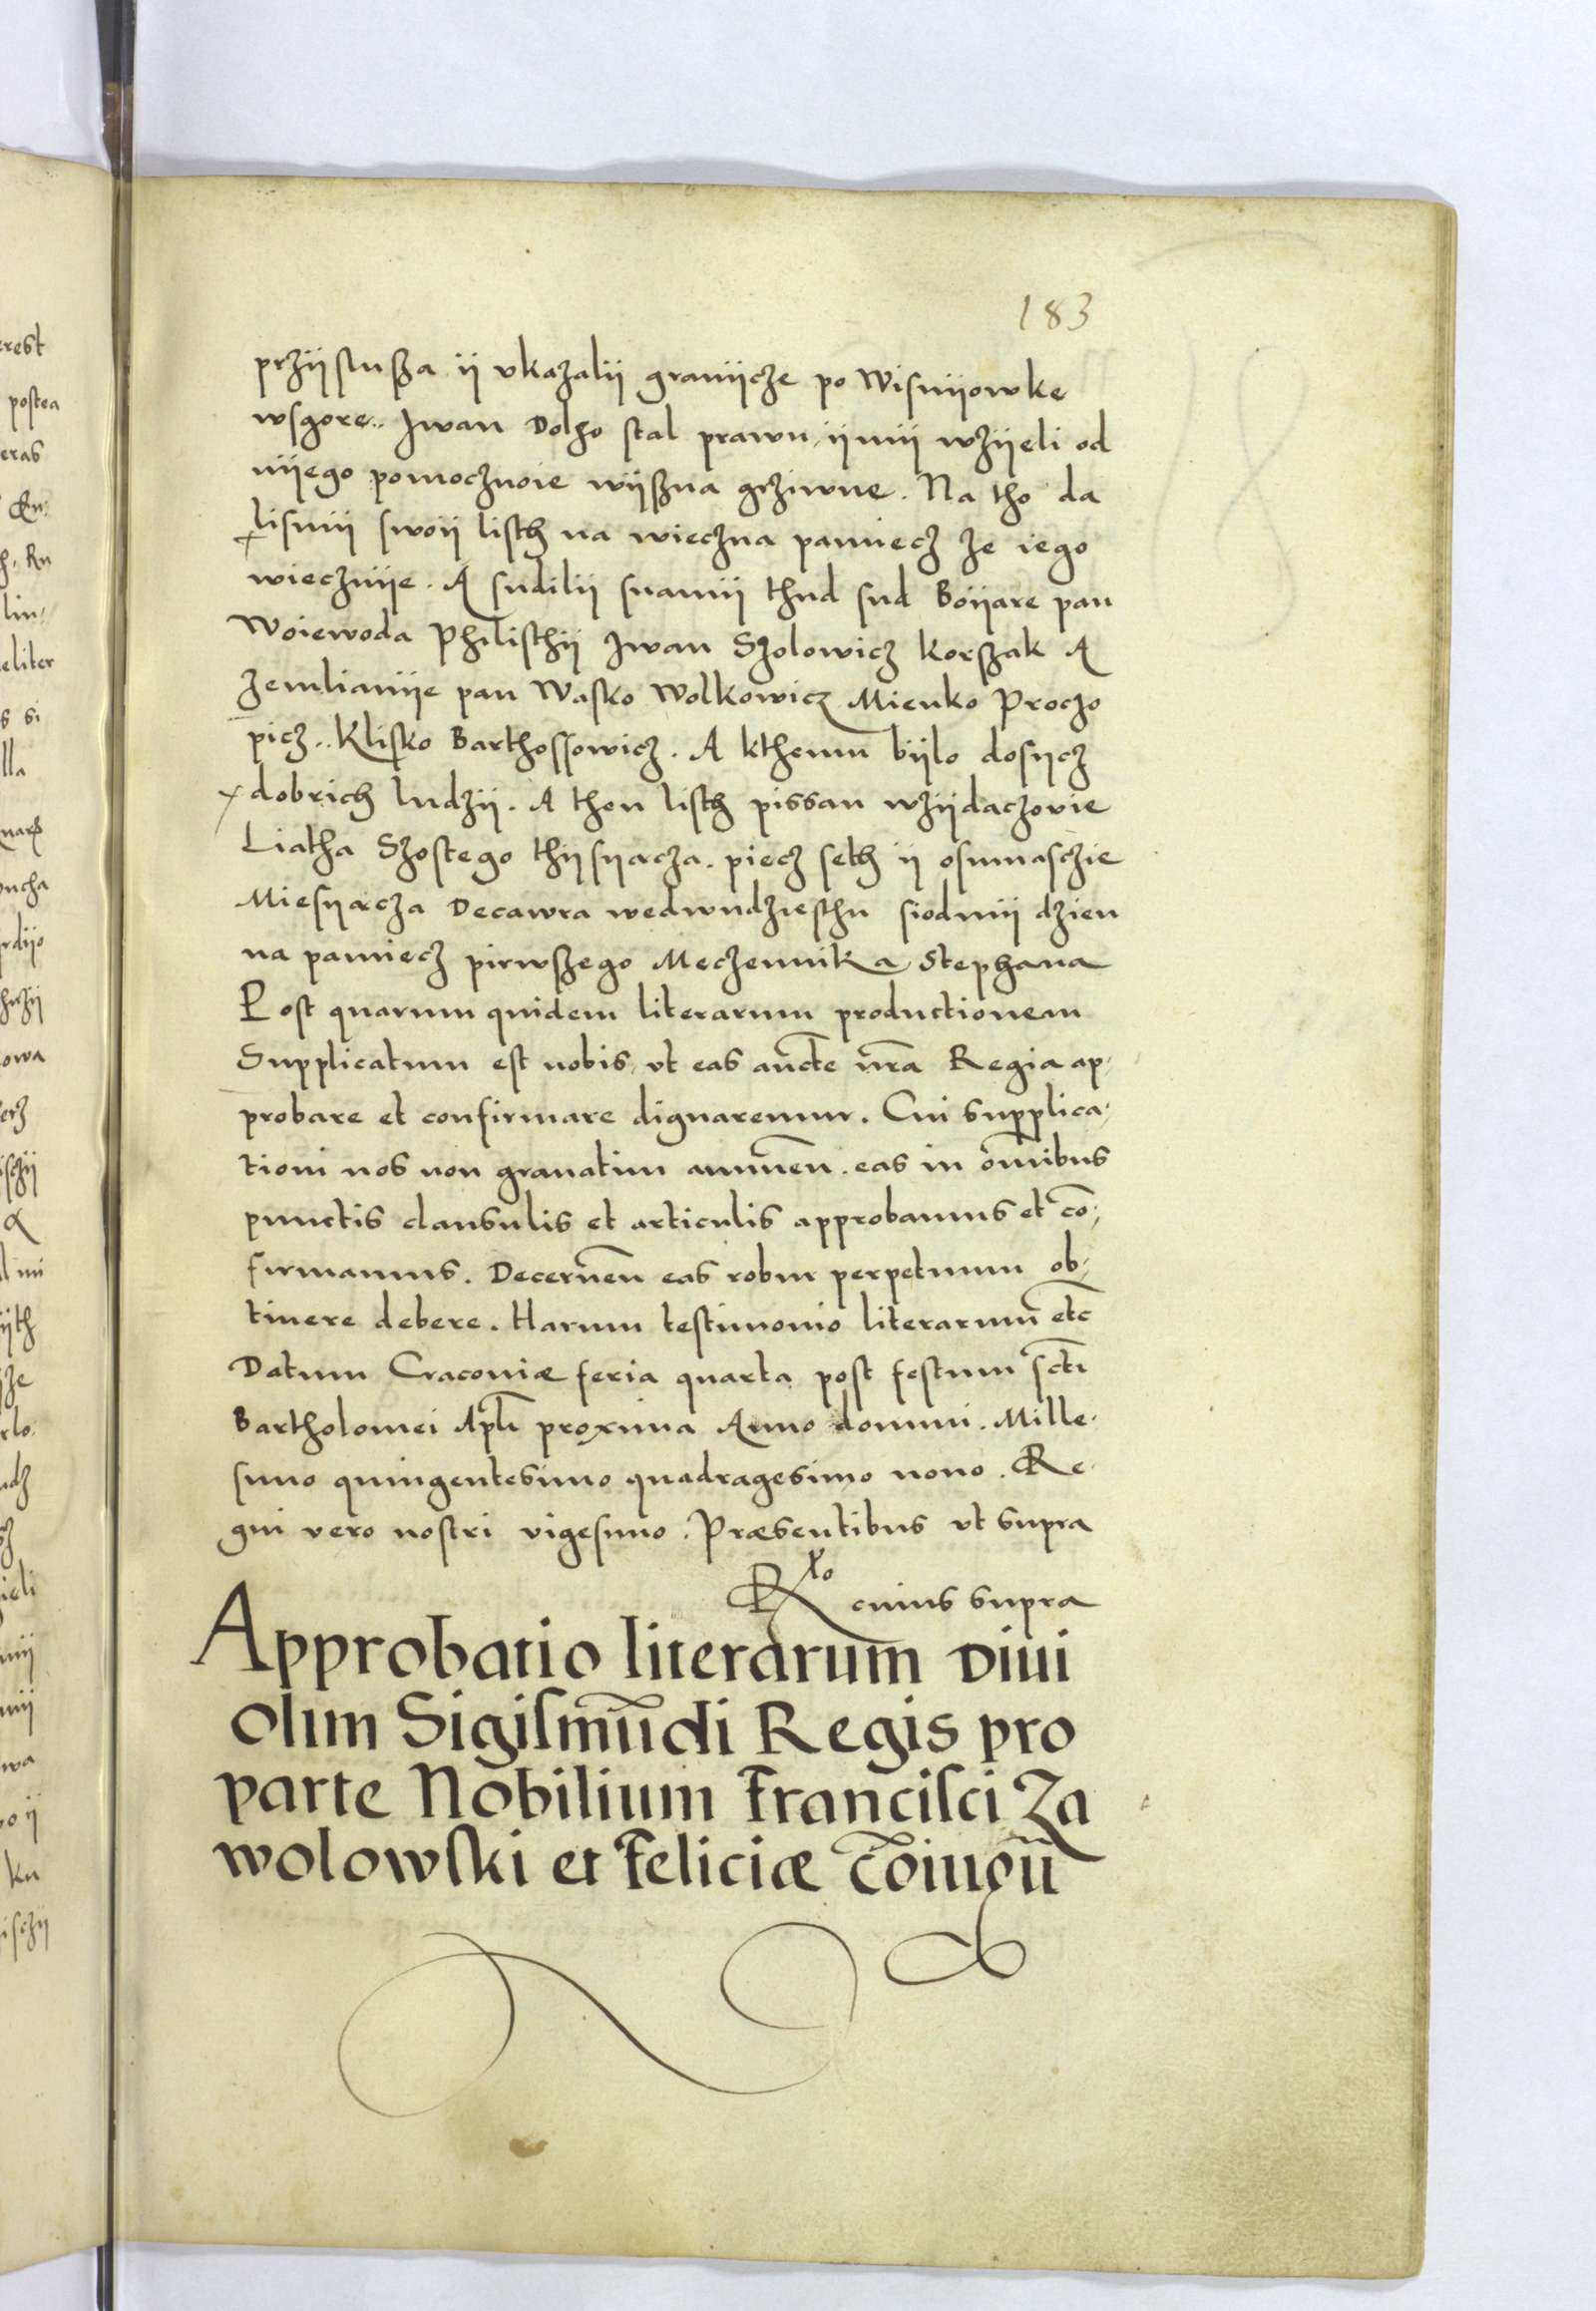 183
przÿslusza ÿ vkazalÿ granÿcze po Wisnÿowke
wsgore.. Jwan Dolho stal prawu, ÿ mÿ wzÿeli od
nÿego pomocznoie wÿszna grziwne. Na tho da
lismÿ swoÿ listh na wieczna pamiecz ze iego
wiecznÿe. A sudilÿ snamÿ thud sud Boÿare pan
Woiewoda Philisthÿ Jwan Szolowicz Korszak A
zemlianÿe pan Wasko Wolkowicz Mienko Proczo
picz.. Klisko Barthossowicz. A kthemu bÿlo dosÿcz
dobrich ludzÿ. A then listh pissan wzÿdaczovie
Liatha Szostego thÿsÿacza. piecz seth ÿ osmnasczie
Miesÿacza Decawra wedwudziesthu siodmÿ dzien
na pamiecz pirwszego Meczennika Stephana
Post quarum quidem literarum productionem
Supplicatum est nobis, vt eas aucte nra Regia ap,
probare et confirmare dignaremur. Cui supplica,
tioni nos non grauatim annuen. eas in omibus
punctis clausulis et articulis approbamus et co,
firmamus. Decernen eas robur perpetuum ob,
tinere debere. Harum testimonio literarum etc
Datum Cracouiæ feria quarta post festum scti
Bartholomei Apli proxima Anno domini. Mille,
simo quingentesimo quadragesimo nono. Re,
gni vero nostri vigesimo. Præsentibus vt supra
Rxo cuius supra
Approbatio literarum Diui
olim Sigiſmūdi Regis pro
parte Nobilium Franciſci Za
wolowſki et Feliciæ cōiugū